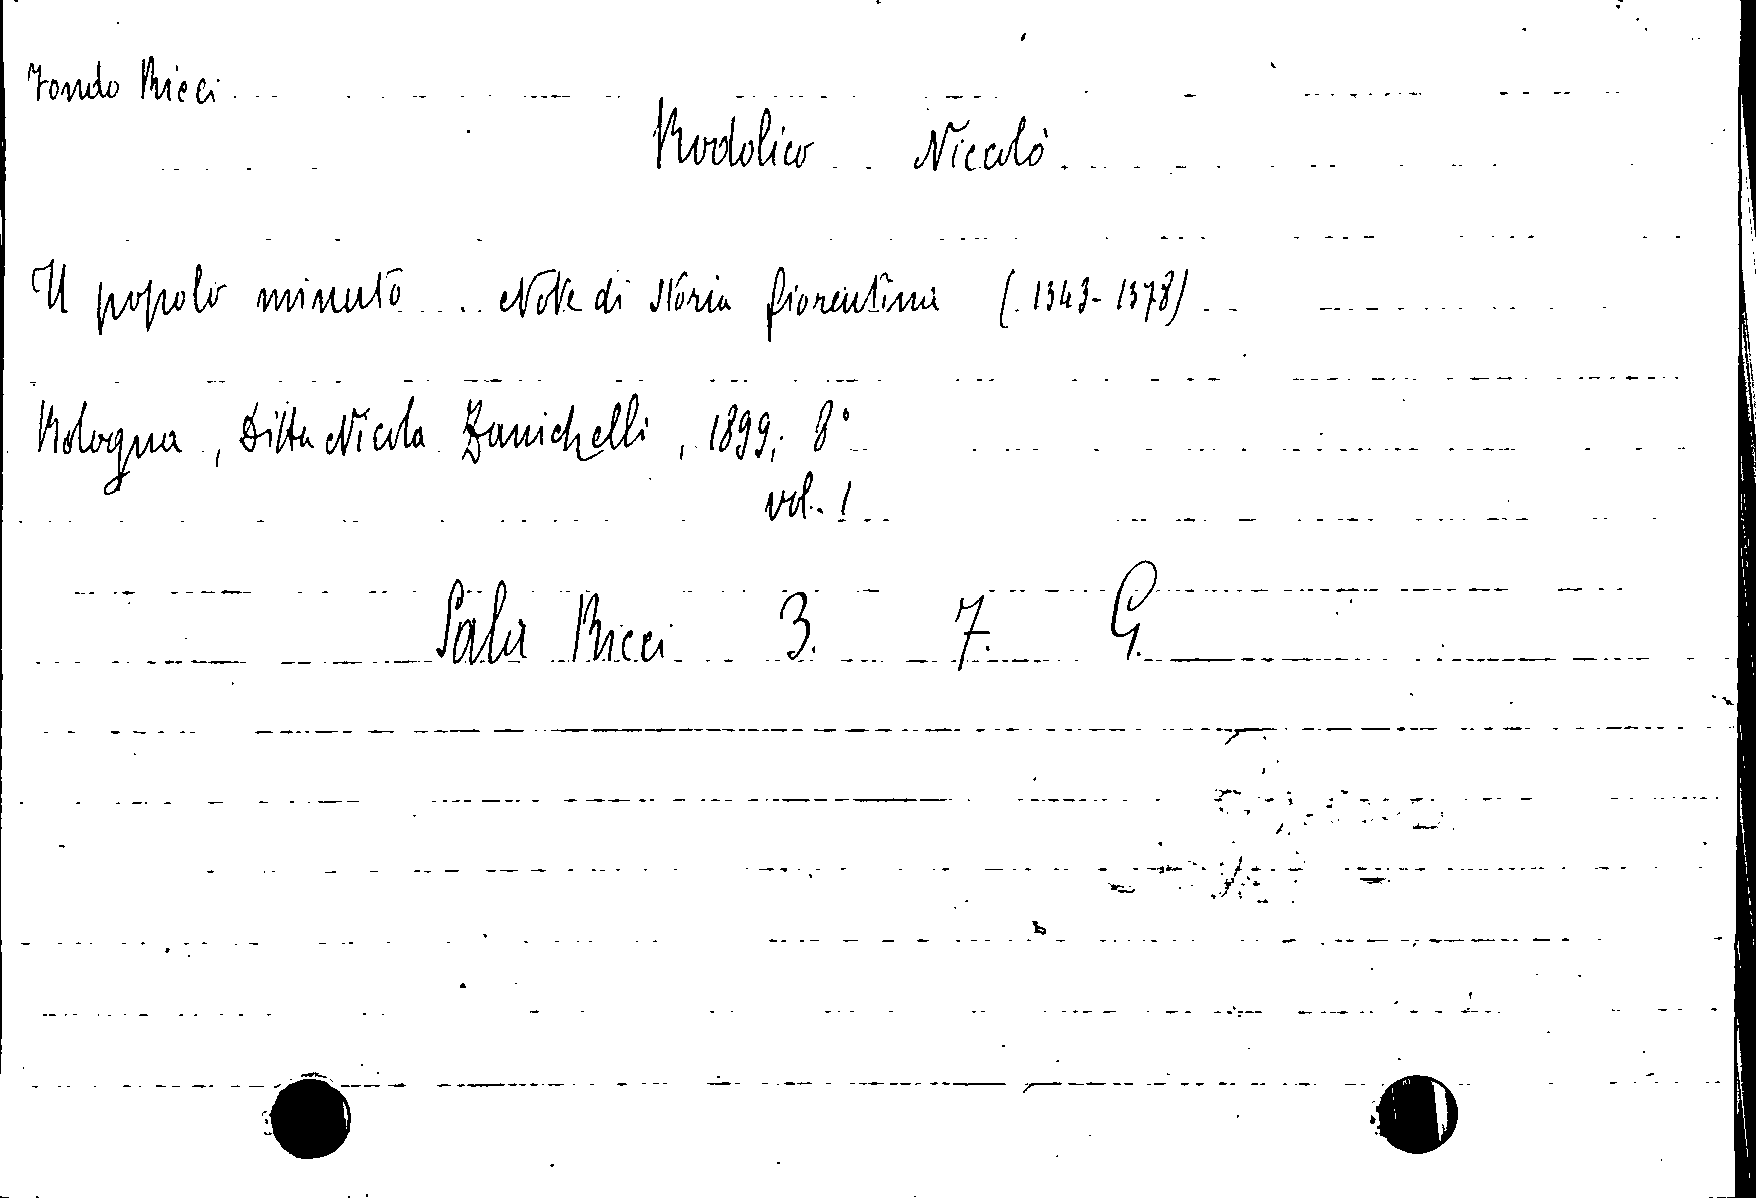 Fondo Ricci
Rodolico Nicolò
Il popolo minuto . Note di storia fiorentina (1343-1378)
Bologna, Ditta Nicola Zanichelli, 1899; 8°
vol. 1
Sala Ricci 3. 7. G.